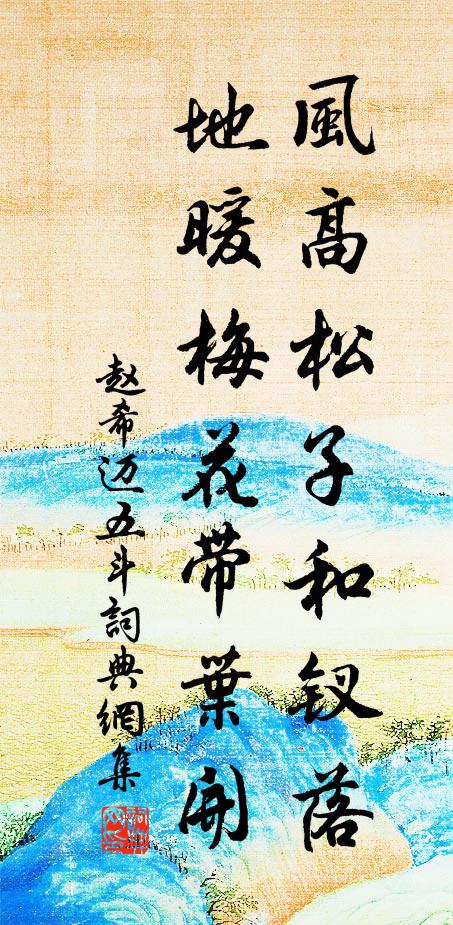 風高松子和釵落
地暖梅花带葉開
赵希迈五斗詞典網集